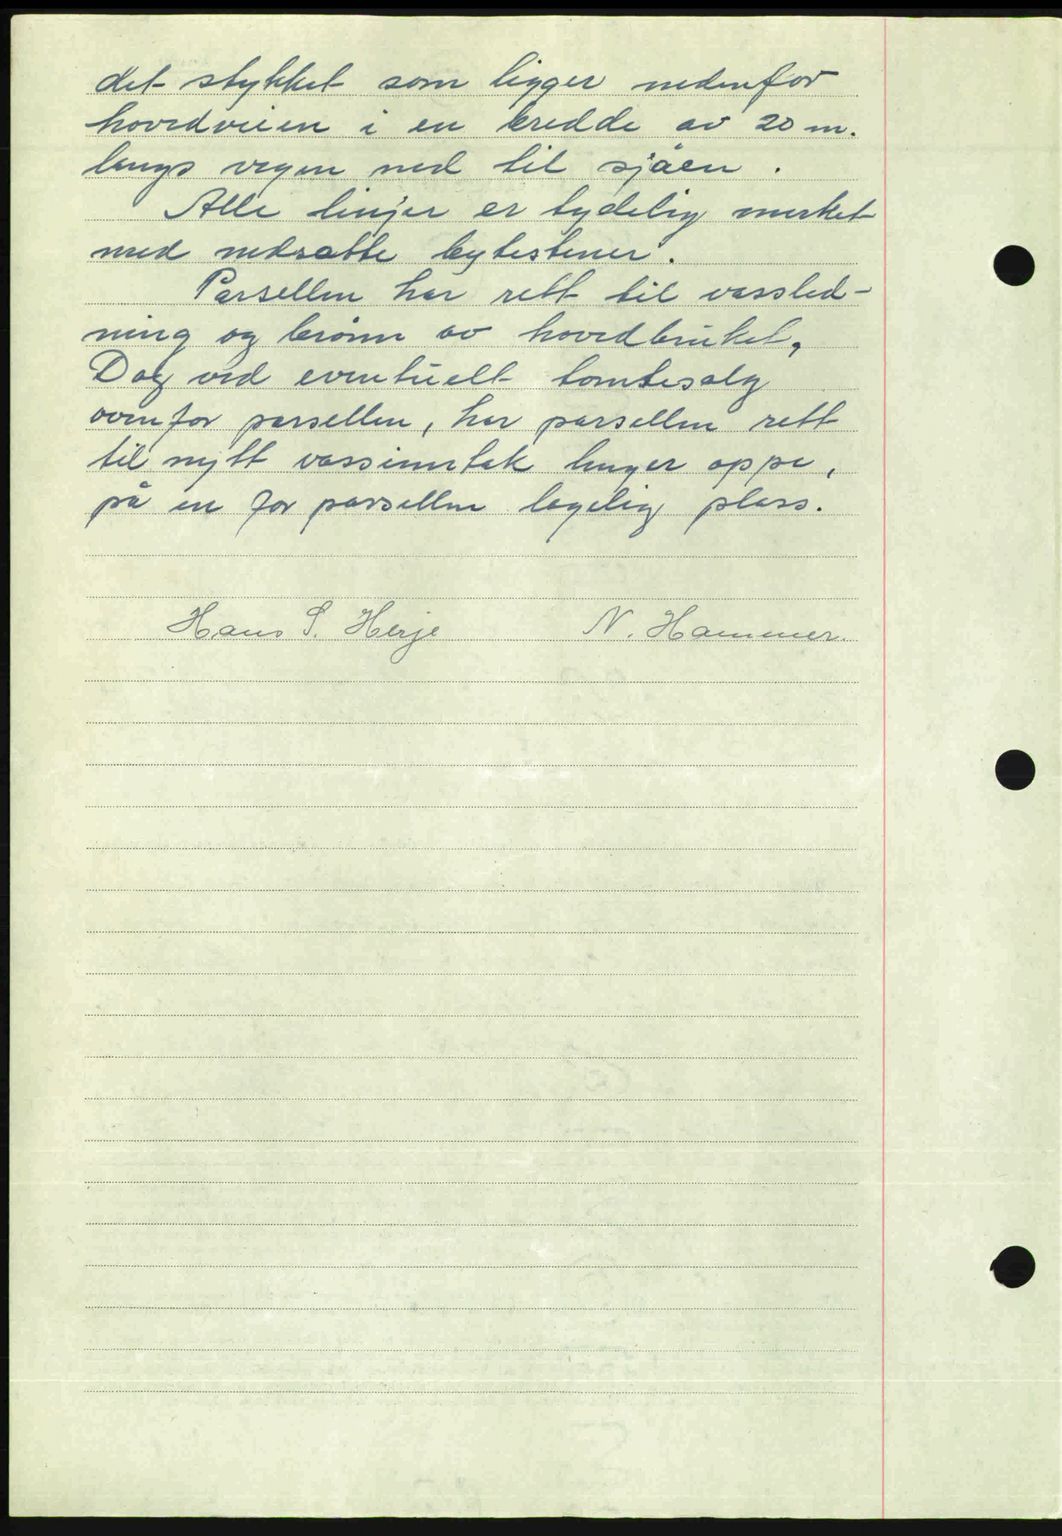 det stykket som ligger nedenfor
hovedveien i en bredde av 20 m.
langs vegen ned til sjøen .
Alle linjer er tydelig merket
med nedsatte bytestener .
Parsellen har rett til vassled-
ning og brønn av hovedbruket,
Dog ved eventuelt tomtesalg
ovenfor parsellen, har parsellen rett
til nytt vassinntak lenger oppe,
på en for parsellen lagelig plass.
Hans S. Herje N. Hammer.